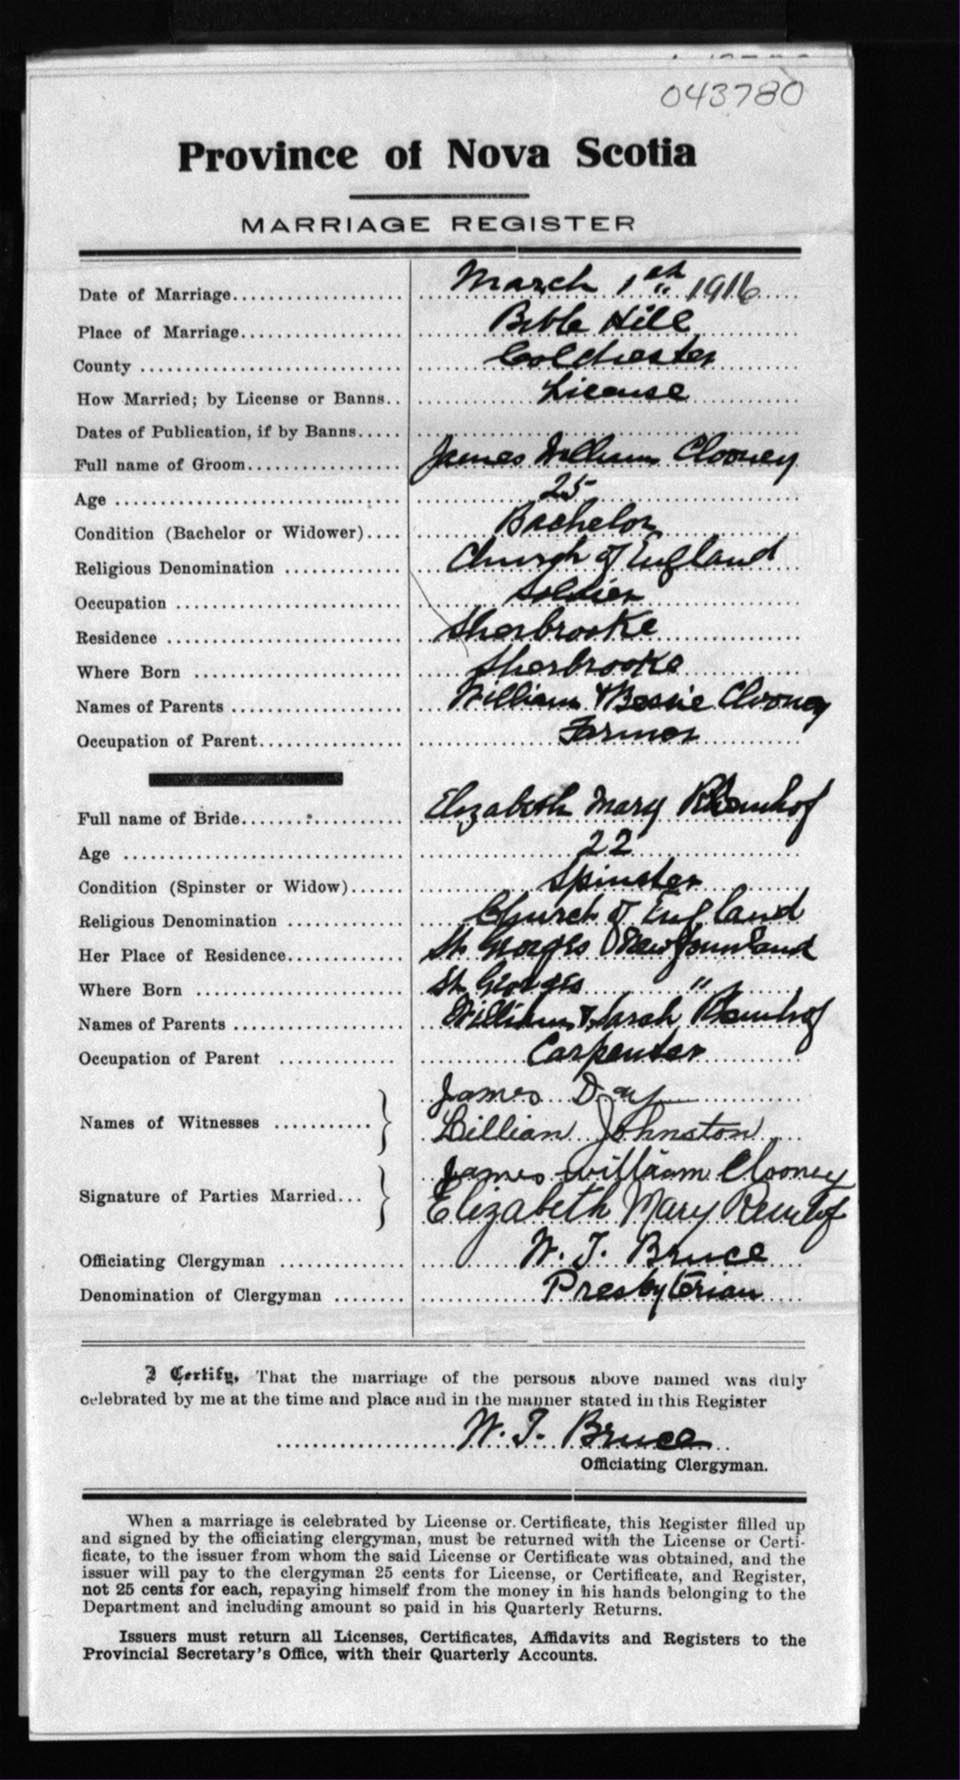 043780
Province of Nova Scotia
MARRIAGE REGISTER
Date of Marriage.................... March 1st 1916
Place of Marriage.................... Bible Hill
County .................... Colchester
How Married; by License or Banns.. License
Dates of Publication, if by Banns.....
Full name of Groom.................... James William Clooney
Age .................... 25
Condition (Bachelor or Widower).... Bachelor
Religious Denomination ............ Church of England
Occupation .................... Soldier
Residence .................... Sherbrooke
Where Born .................... Sherbrooke
Names of Parents .................... William & Bessie Clooney
Occupation of Parent.................... Farmer
Full name of Bride.................... Elizabeth Mary
Age .................... 22
Condition (Spinster or Widow)...... Spinster
Religious Denomination ............ Church of England
Her Place of Residence............. St Georges Newfounland
Where Born .................... St Georges "
Names of Parents .................... William & Sarah
Occupation of Parent ............ Carpenter
James Day
Names of Witnesses ...........
Lillian Johnston
James william Clooney
Signature of Parties Married...
Elizabeth Mary
Officiating Clergyman ............ W. T. Bruce
Denomination of Clergyman ........ Presbyterian
I Certify, That the marriage of the persons above named was duly
celebrated by me at the time and place and in the manner stated in this Register
W. T. Bruce
Officiating Clergyman.
When a marriage is celebrated by License or Certificate, this Register filled up
and signed by the officiating clergyman, must be returned with the License or Certi-
ficate, to the issuer from whom the said License or Certificate was obtained, and the
issuer will pay to the clergyman 25 cents for License, or Certificate, and Register,
not 25 cents for each, repaying himself from the money in his hands belonging to the
Department and including amount so paid in his Quarterly Returns.
Issuers must return all Licenses, Certificates, Affidavits and Registers to the
Provincial Secretary's Office, with their Quarterly Accounts.